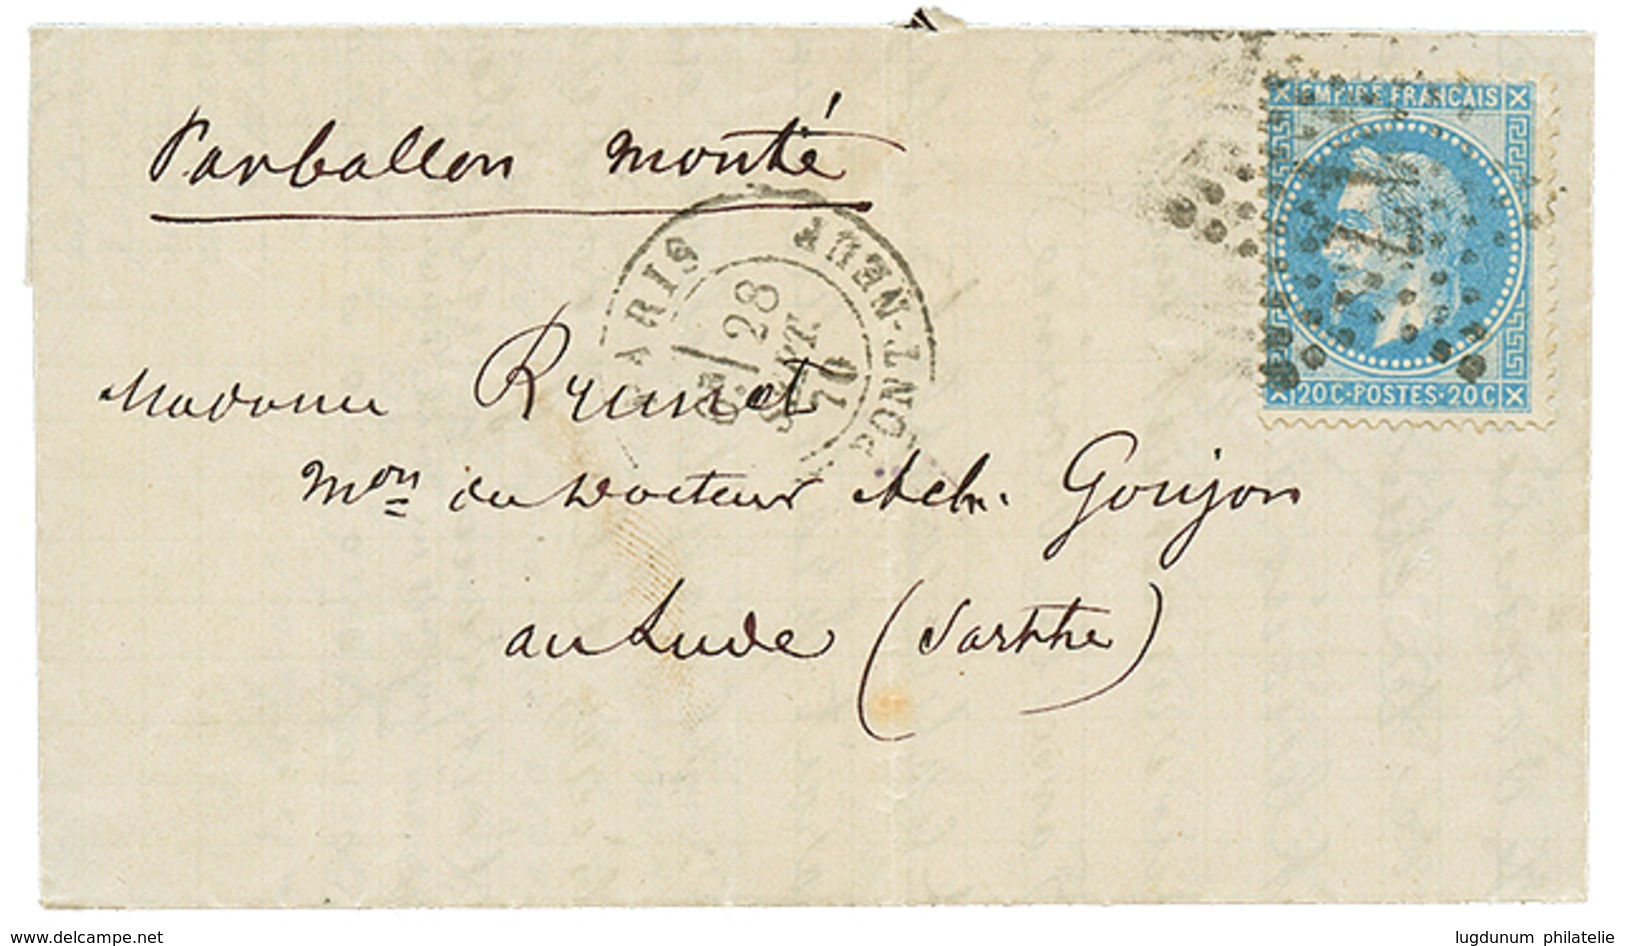 Par ballon monté
EMPIRE FRANÇAIS
20C-POSTES-20C
PARIS R. DU PONT-NEUF
6E/ 28
SEPT.
70
Madame Brunet
Mon du Docteur Goujon
au Lude (Sarthe)
www.delcampe.net
lugdunum philatelie